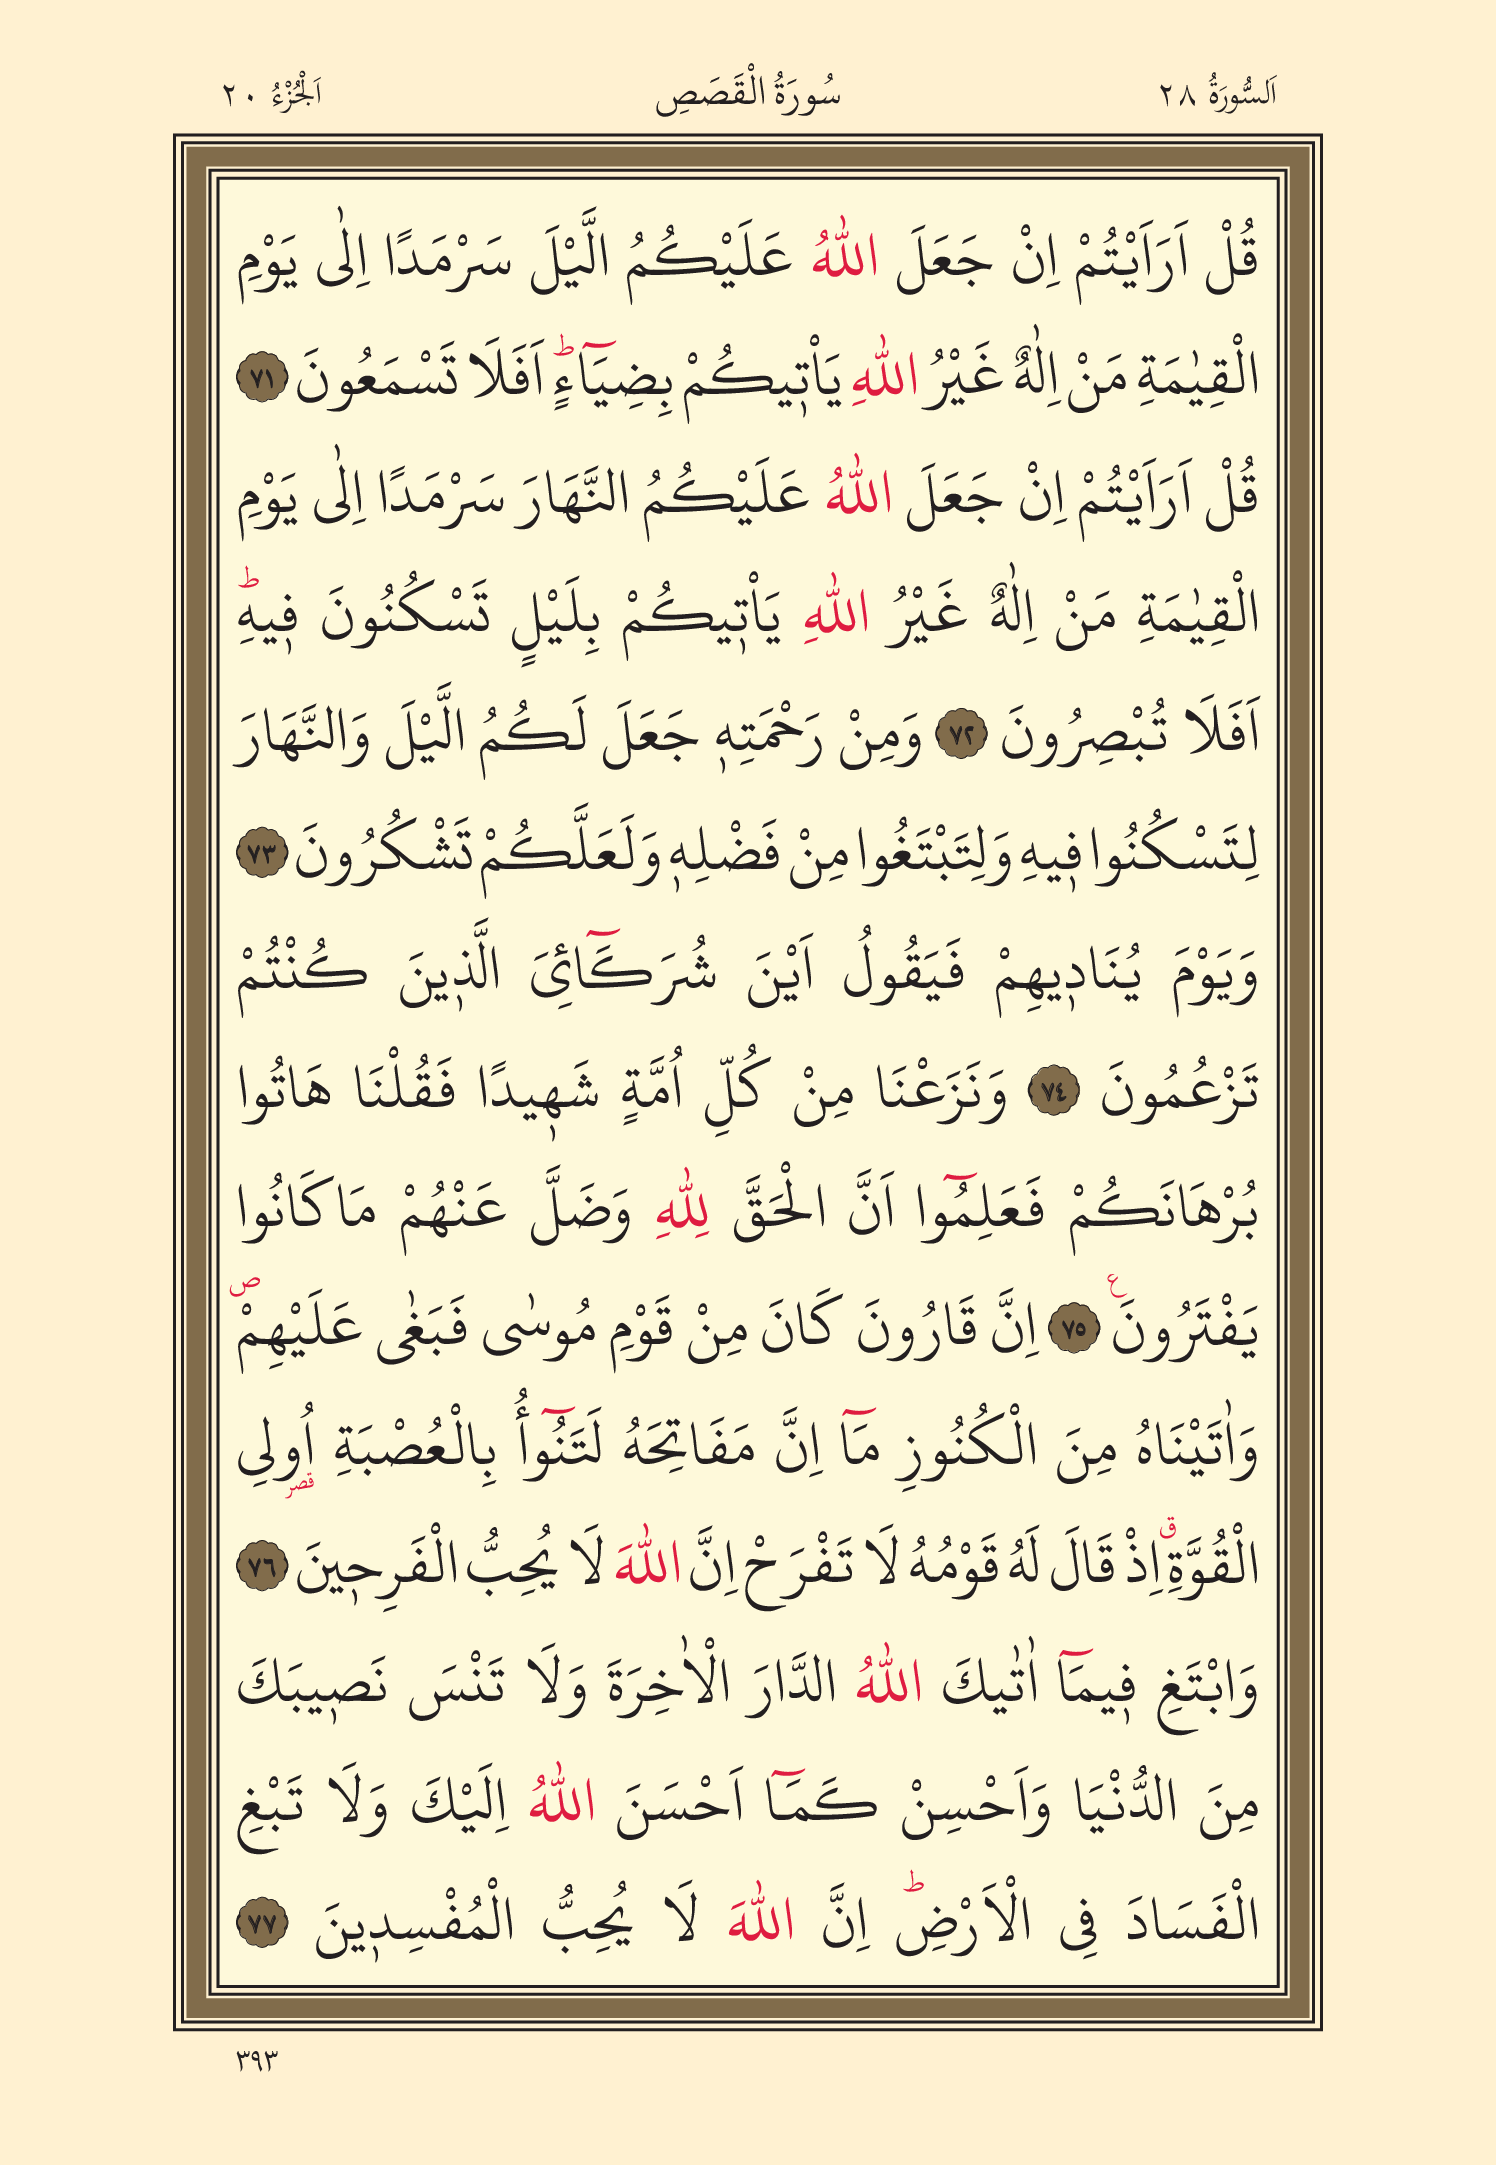 اَلسُّورَةُ ٢٨ سُورَةُ الْقَصَصِ اَلْجُزْءُ ٢٠
قُلْ اَرَاَيْتُمْ اِنْ جَعَلَ اللّٰهُ عَلَيْكُمُ الَّيْلَ سَرْمَدًا اِلٰى يَوْمِ
الْقِيٰمَةِ مَنْ اِلٰهٌ غَيْرُ اللّٰهِ يَاْت۪يكُمْ بِضِيَٓاءٍۜ اَفَلَا تَسْمَعُونَ ٧١
قُلْ اَرَاَيْتُمْ اِنْ جَعَلَ اللّٰهُ عَلَيْكُمُ النَّهَارَ سَرْمَدًا اِلٰى يَوْمِ
الْقِيٰمَةِ مَنْ اِلٰهٌ غَيْرُ اللّٰهِ يَاْت۪يكُمْ بِلَيْلٍ تَسْكُنُونَ ف۪يهِۜ
اَفَلَا تُبْصِرُونَ ٧٢ وَمِنْ رَحْمَتِه۪ جَعَلَ لَكُمُ الَّيْلَ وَالنَّهَارَ
لِتَسْكُنُوا ف۪يهِ وَلِتَبْتَغُوا مِنْ فَضْلِه۪ وَلَعَلَّكُمْ تَشْكُرُونَ ٧٣
وَيَوْمَ يُنَاد۪يهِمْ فَيَقُولُ اَيْنَ شُرَكَٓائِيَ الَّذ۪ينَ كُنْتُمْ
تَزْعُمُونَ ٧٤ وَنَزَعْنَا مِنْ كُلِّ اُمَّةٍ شَه۪يدًا فَقُلْنَا هَاتُوا
بُرْهَانَكُمْ فَعَلِمُٓوا اَنَّ الْحَقَّ لِلّٰهِ وَضَلَّ عَنْهُمْ مَا كَانُوا
يَفْتَرُونَ۟ ٧٥ اِنَّ قَارُونَ كَانَ مِنْ قَوْمِ مُوسٰى فَبَغٰى عَلَيْهِمْۖ
وَاٰتَيْنَاهُ مِنَ الْكُنُوزِ مَٓا اِنَّ مَفَاتِحَهُ لَتَنُٓوأُ بِالْعُصْبَةِ اُو۬لِي
الْقُوَّةِۗ اِذْ قَالَ لَهُ قَوْمُهُ لَا تَفْرَحْ اِنَّ اللّٰهَ لَا يُحِبُّ الْفَرِح۪ينَ ٧٦
وَابْتَغِ ف۪يمَٓا اٰتٰيكَ اللّٰهُ الدَّارَ الْاٰخِرَةَ وَلَا تَنْسَ نَص۪يبَكَ
مِنَ الدُّنْيَا وَاَحْسِنْ كَمَٓا اَحْسَنَ اللّٰهُ اِلَيْكَ وَلَا تَبْغِ
الْفَسَادَ فِي الْاَرْضِۜ اِنَّ اللّٰهَ لَا يُحِبُّ الْمُفْسِد۪ينَ ٧٧
٣٩٣